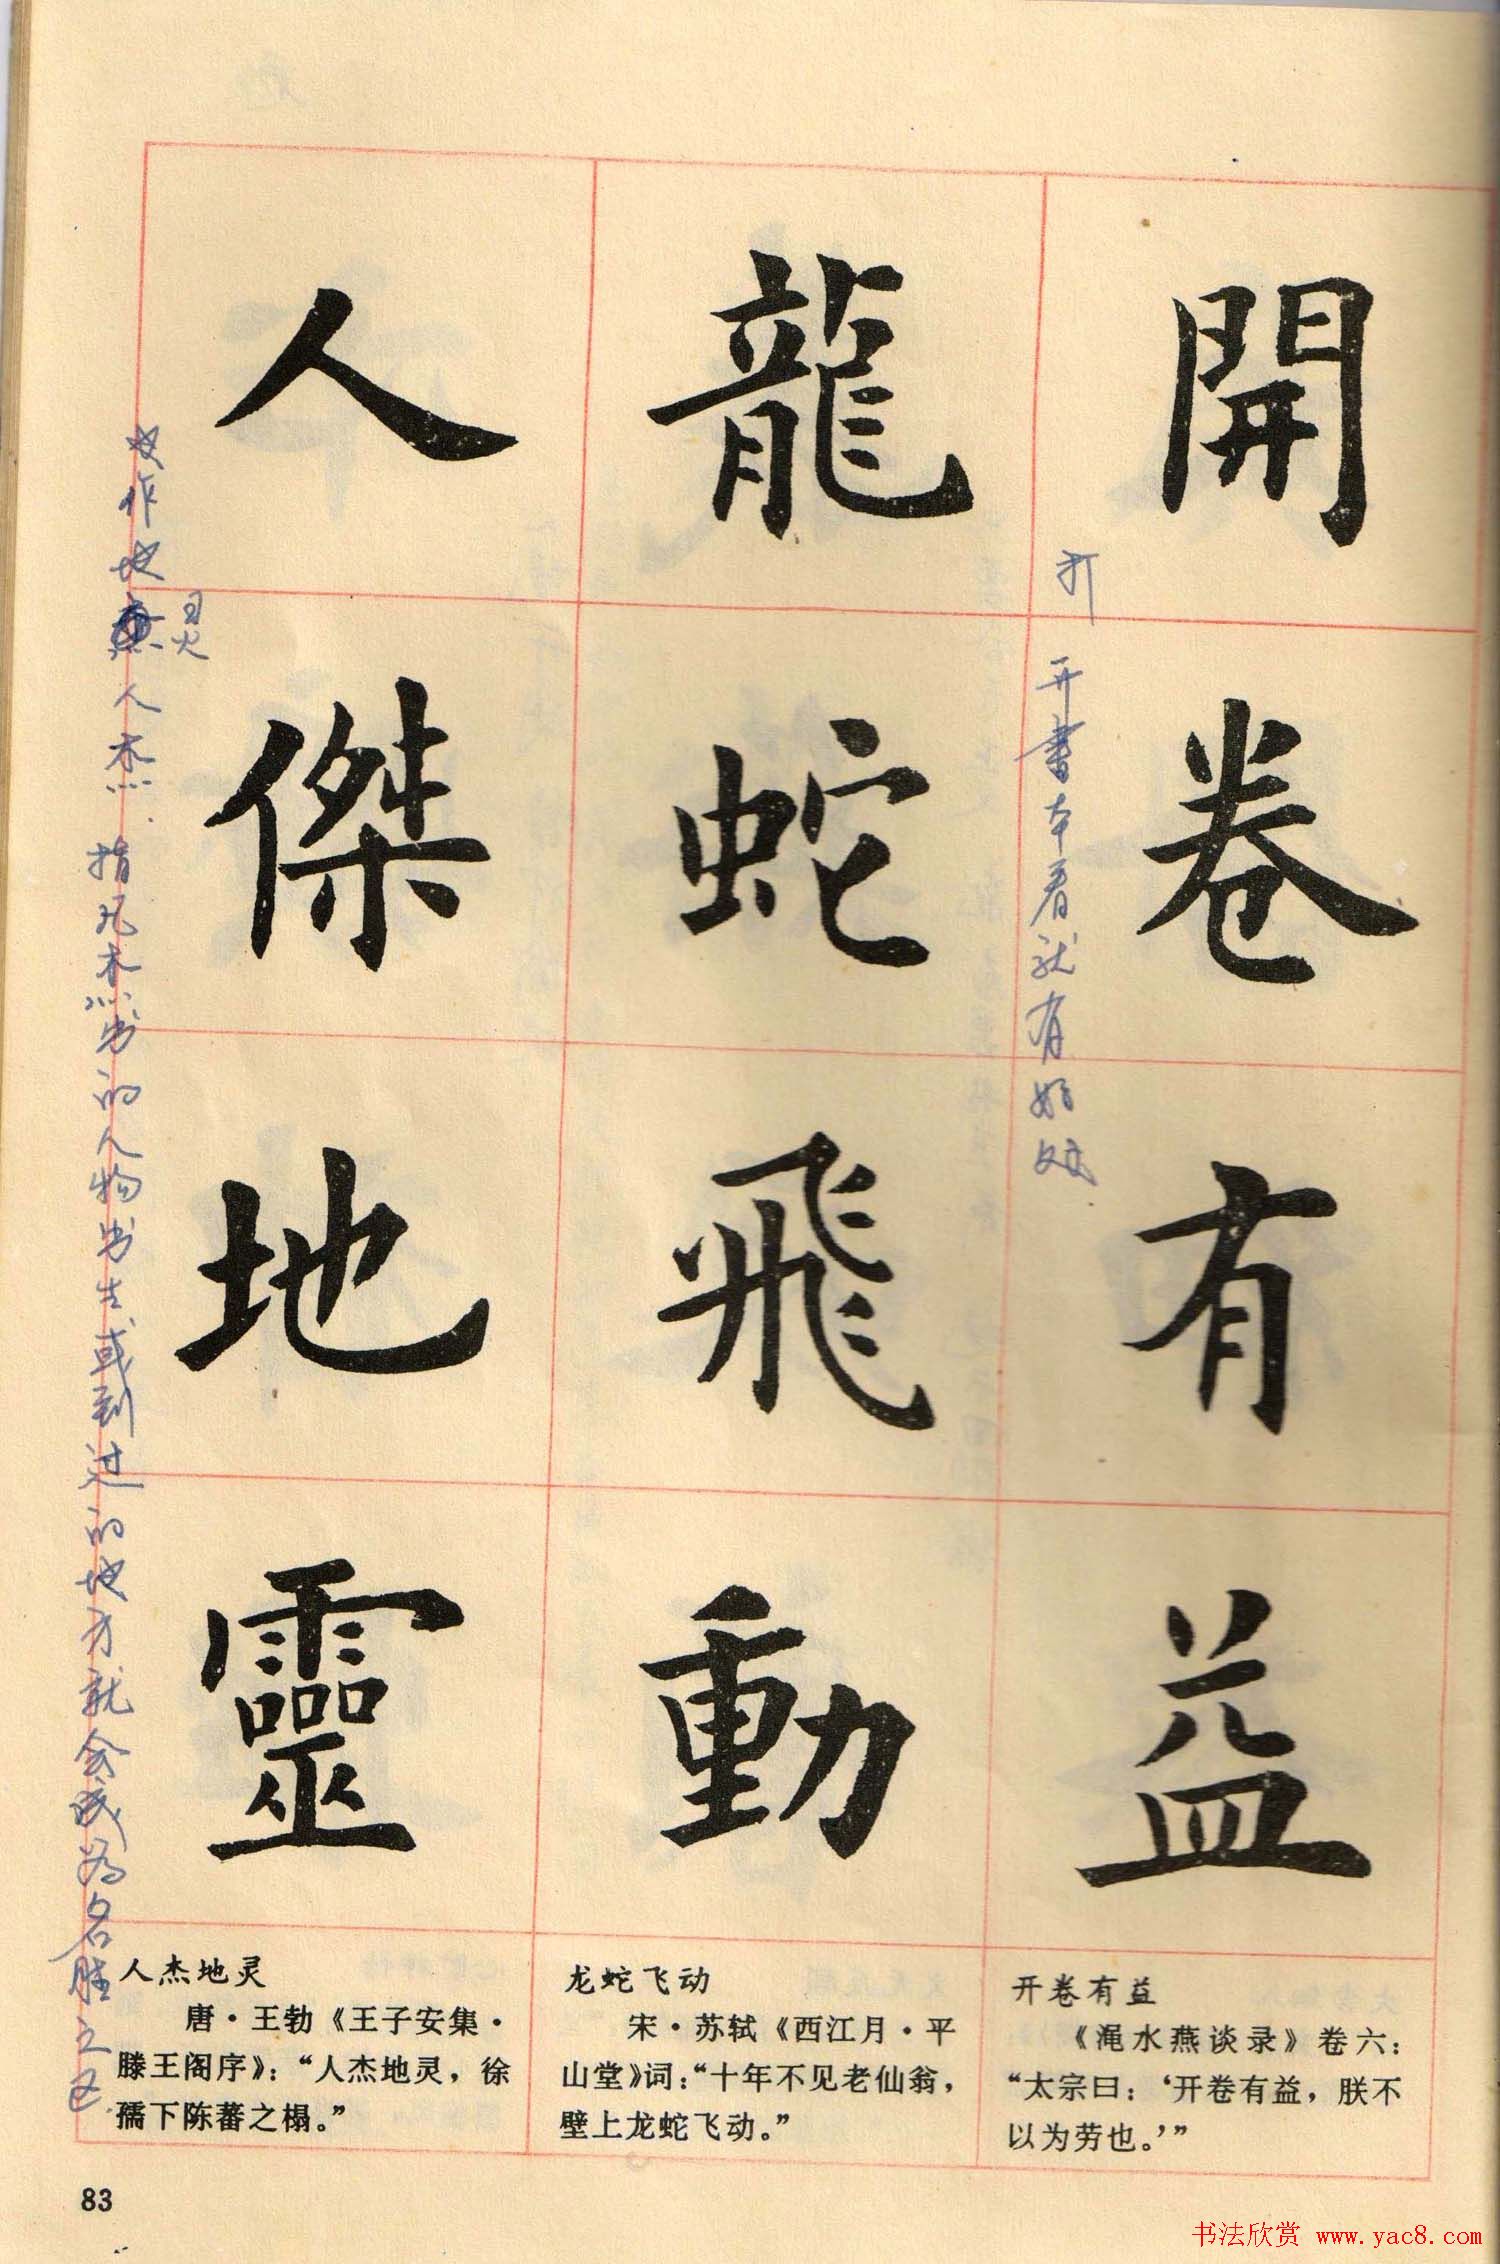 開卷有益
打开书本看就有好处
龍蛇飛動
人傑地靈
又作地灵人杰.指凡杰出的人物出生或到过的地方就会成为名胜之区
开卷有益
《渑水燕谈录》卷六：
“太宗曰：‘开卷有益，朕不
以为劳也。’”
龙蛇飞动
宋·苏轼《西江月·平
山堂》词：“十年不见老仙翁，
壁上龙蛇飞动。”
人杰地灵
唐·王勃《王子安集·
滕王阁序》：“人杰地灵，徐
孺下陈蕃之榻。”
83
书法欣赏 www.yac8.com